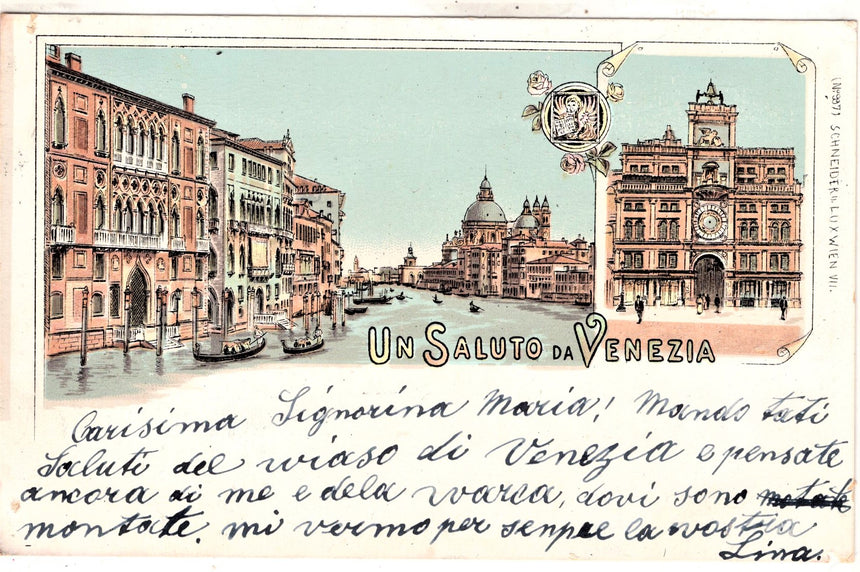 UN SALUTO DA VENEZIA
(No 387) SCHNEIDER & LUX WIEN VII.
Carisima Signorina Maria! Mando tati
Saluti del wiaso di Venezia e pensate
ancora di me e dela warca, dovi sono
montate. mi vermo per senpre la vostra
Lina.